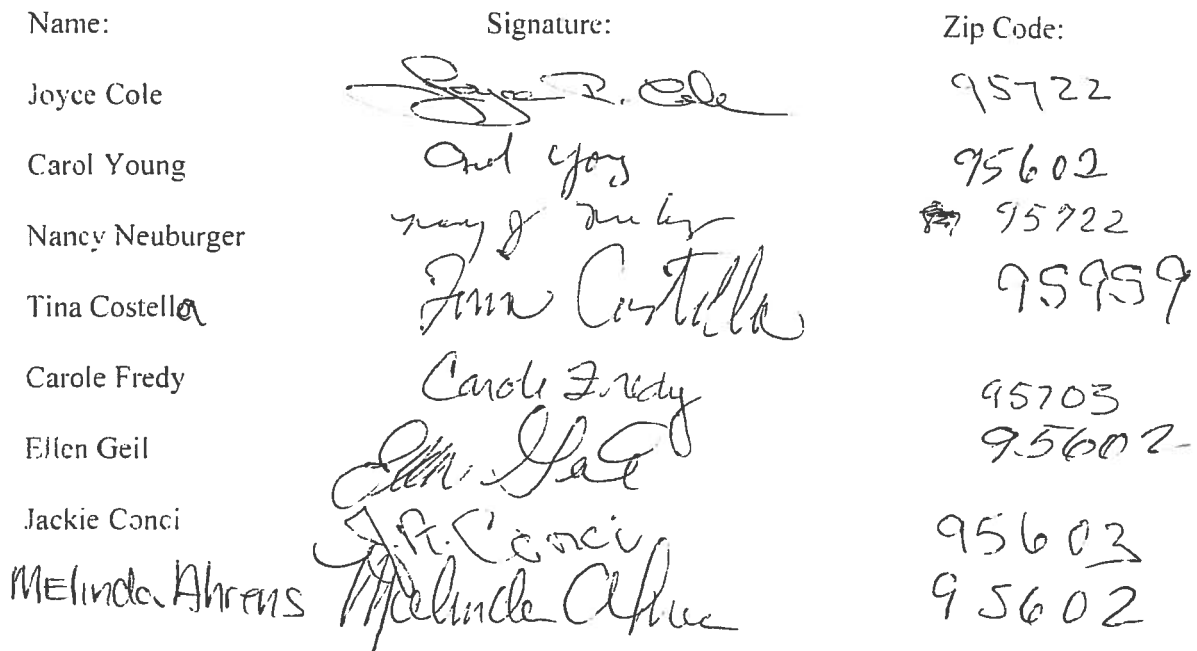 Name: Signature: Zip Code:
Joyce Cole Joyce R. Cole 95722
Carol Young Carol Young 95602
Nancy Neuburger 95722
Tina Costella Tina Costella 95959
Carole Fredy Carole Fredy 95703
Ellen Geil Ellen Geil 95602
Jackie Conci J.A. Conci 95603
MElinda Ahrens Melinda Ahrens 95602